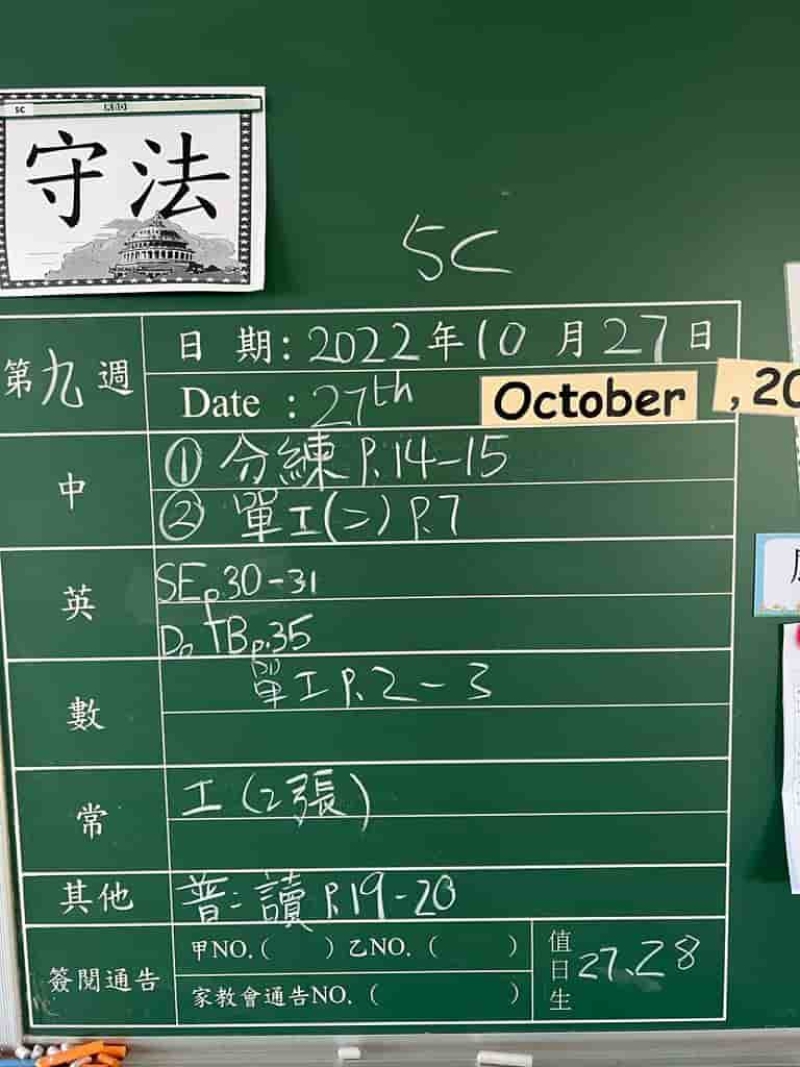 5C
守法
5C
第九週
日 期：2022年10月27日
Date：27th October, 20
中
① 分練 P.14-15
② 單工(二) P.7
英
SE p.30-31
TB p.35
數
單工 P.2-3
常
工(2張)
其他
普：讀 P.19-20
簽閱通告
甲NO.（ ）乙NO.（ ）
家教會通告NO.（ ）
值日生 27、28